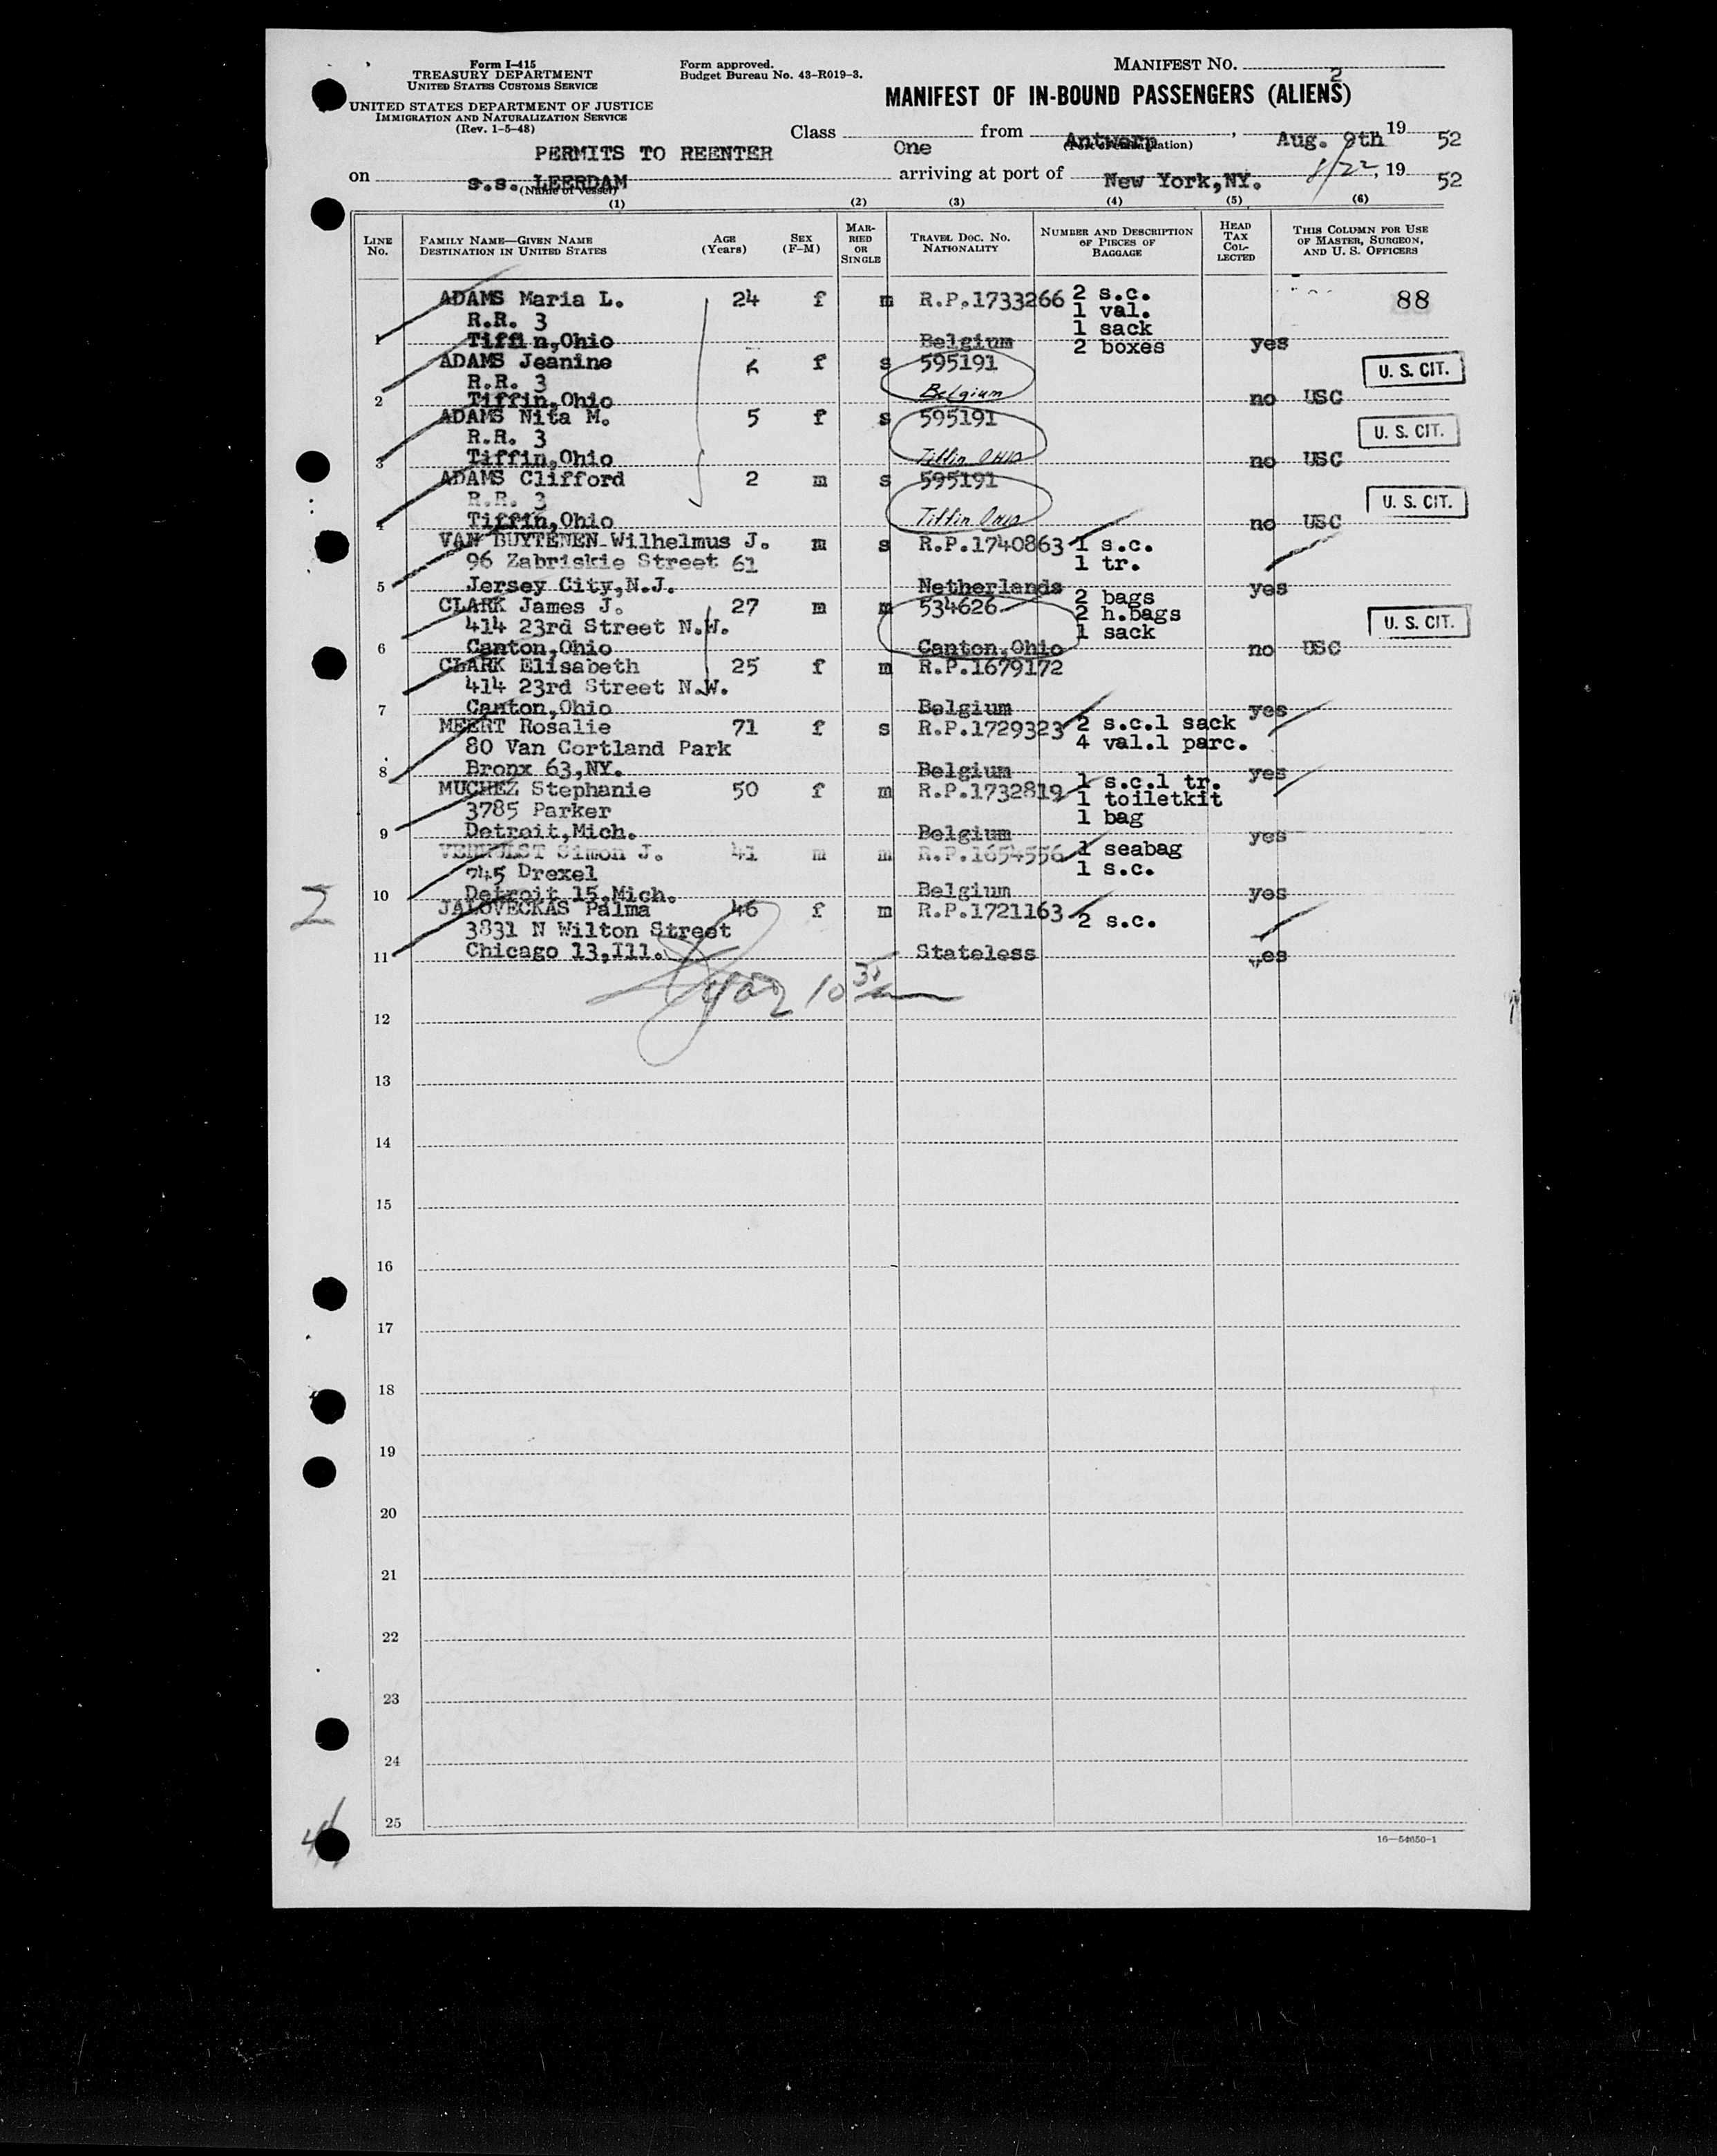 Form I-415
TREASURY DEPARTMENT
UNITED STATES CUSTOMS SERVICE
UNITED STATES DEPARTMENT OF JUSTICE
IMMIGRATION AND NATURALIZATION SERVICE
(Rev. 1-5-48)
Form approved.
Budget Bureau No. 43-R019-3.
MANIFEST NO. 2
MANIFEST OF IN-BOUND PASSENGERS (ALIENS)
Class One from Antwerp, Aug. 9th 1952
PERMITS TO REENTER
on s.s. LEERDAM arriving at port of New York,NY. 8/22, 1952
(Name of vessel)
(1) (2) (3) (4) (5) (6)
LINE No. FAMILY NAME—GIVEN NAME DESTINATION IN UNITED STATES AGE (Years) SEX (F-M) MARRIED OR SINGLE TRAVEL DOC. NO. NATIONALITY NUMBER AND DESCRIPTION OF PIECES OF BAGGAGE HEAD TAX COLLECTED THIS COLUMN FOR USE OF MASTER, SURGEON, AND U. S. OFFICERS
ADAMS Maria L. 24 f m R.P.1733266 2 s.c. 88
R.R. 3 1 val.
1 sack
1 Tiffin,Ohio Belgium 2 boxes yes
ADAMS Jeanine 6 f s 595191 U. S. CIT.
R.R. 3
2 Tiffin,Ohio Belgium no USC
ADAMS Nita M. 5 f s 595191 U. S. CIT.
R.R. 3
3 Tiffin,Ohio Tiffin Ohio no USC
ADAMS Clifford 2 m s 595191 U. S. CIT.
R.R. 3
4 Tiffin,Ohio Tiffin Ohio no USC
VAN BUYTENEN Wilhelmus J. m s R.P.1740863 1 s.c.
96 Zabriskie Street 61 1 tr.
5 Jersey City,N.J. Netherlands yes
CLARK James J. 27 m m 534626 2 bags
414 23rd Street N.W. 2 h.bags U. S. CIT.
1 sack
6 Canton,Ohio Canton,Ohio no USC
CLARK Elisabeth 25 f m R.P.1679172
414 23rd Street N.W.
7 Canton,Ohio Belgium yes
MEERT Rosalie 71 f s R.P.1729323 2 s.c.1 sack
80 Van Cortland Park 4 val.1 parc.
8 Bronx 63,NY. Belgium yes
MUCHEZ Stephanie 50 f m R.P.1732819 1 s.c.1 tr.
3785 Parker 1 toiletkit
1 bag
9 Detroit,Mich. Belgium yes
VERHULST Simon J. 41 m m R.P.1654556 1 seabag
745 Drexel 1 s.c.
10 Detroit 15,Mich. Belgium yes
JALOVECKAS Palma 46 f m R.P.1721163 2 s.c.
3831 N Wilton Street
11 Chicago 13,Ill. Stateless yes
2
12
13
14
15
16
17
18
19
20
21
22
23
24
25
16—54650-1